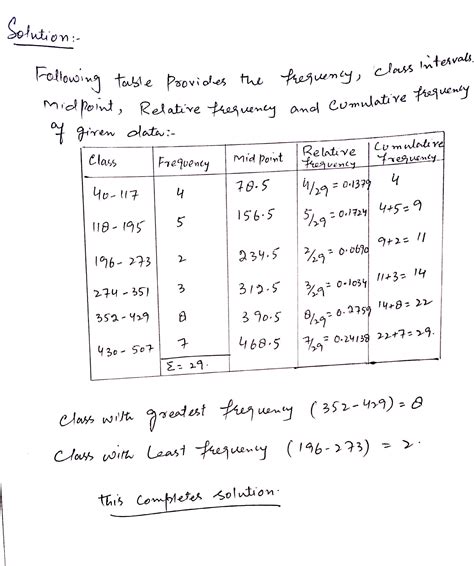 Solution:-
Following table provides the frequency, class intervals.
midpoint, Relative frequency and cumulative frequency
of given data:-
Class Frequency Midpoint Relative frequency Cumulative frequency
40-117 4 78.5 4/29 = 0.1379 4
118-195 5 156.5 5/29 = 0.1724 4+5=9
196-273 2 234.5 2/29 = 0.0690 9+2= 11
274-351 3 312.5 3/29 = 0.1034 11+3= 14
352-429 8 390.5 8/29 = 0.2759 14+8= 22
430-507 7 468.5 7/29 = 0.24138 22+7= 29.
Σ= 29.
Class with greatest frequency (352-429) = 8
Class with Least frequency (196-273) = 2.
this completes solution.